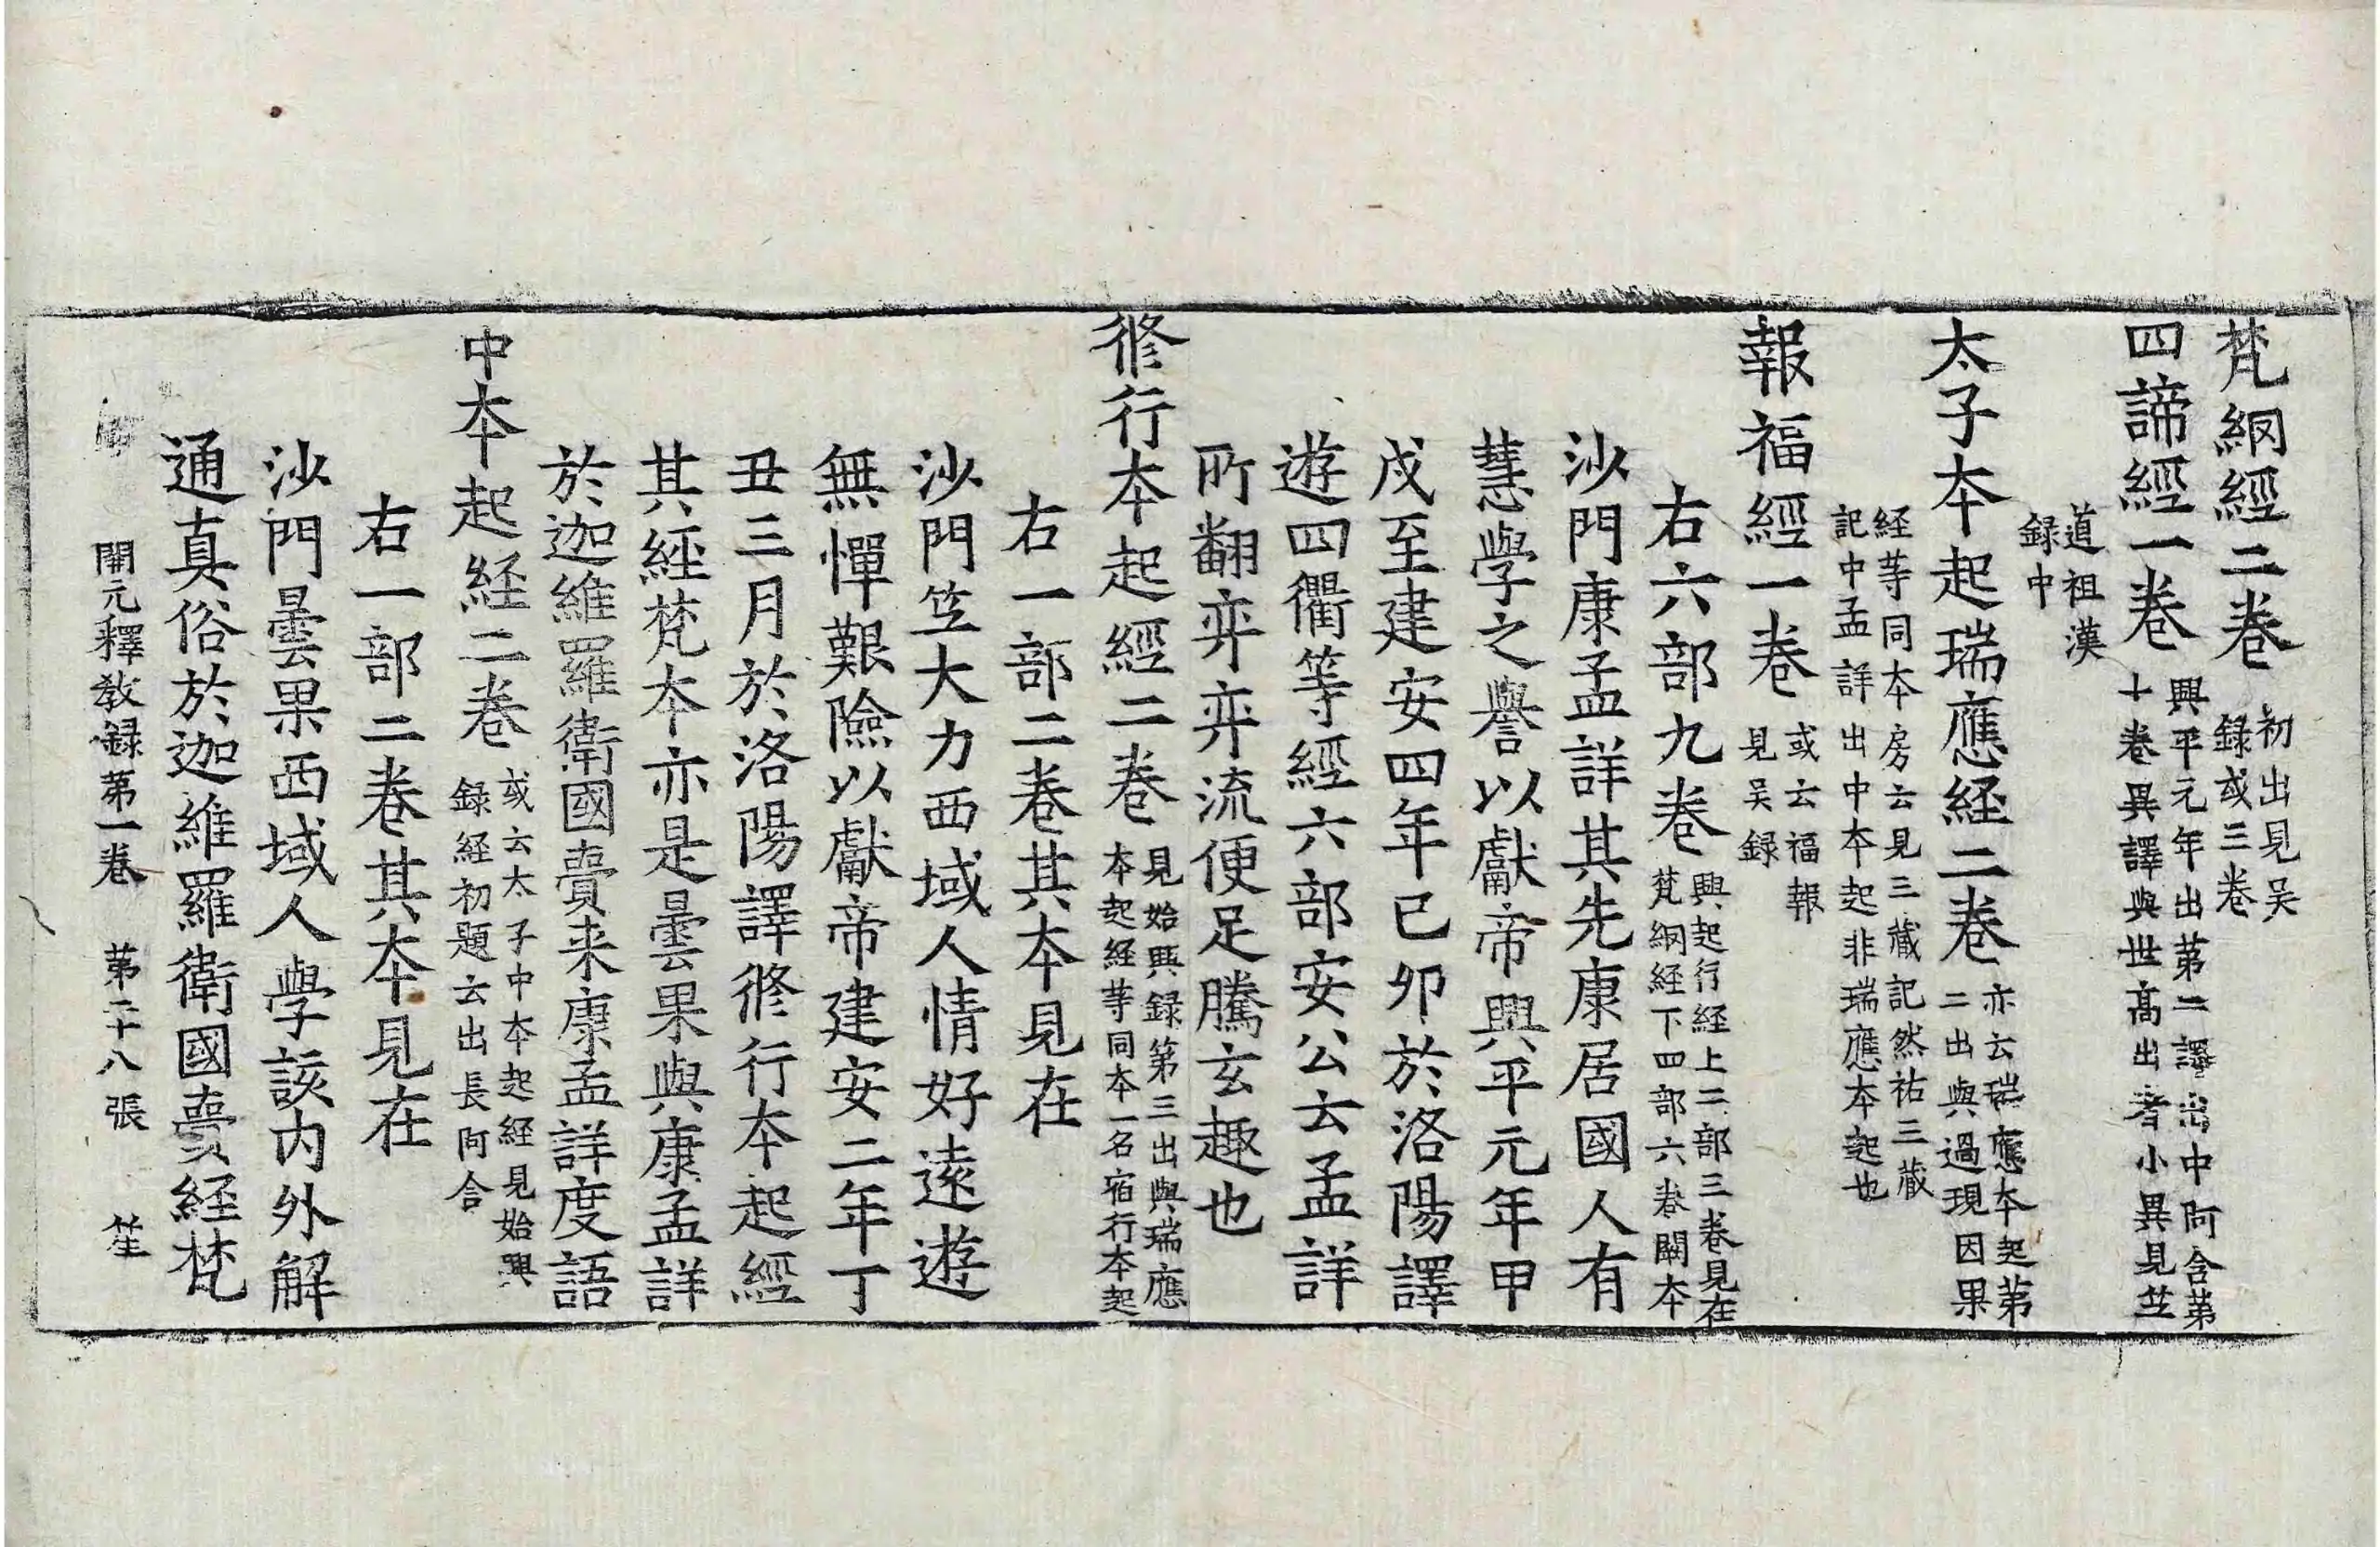 梵綱經二卷 初出見吴録或三卷
四諦經一卷 興平元年出第二譯出中阿含第十卷異譯與世髙出者小異見笁
道祖漢録中
太子夲起瑞應経二卷 亦云瑞應夲起第二出與過現因果
経䓁同夲房云見三藏記然祐三藏記中孟詳出中夲起非瑞應夲起也
報福經一卷 或云福報見吴録
右六部九卷 興起行経上二部三卷見在梵綱経下四部六卷闕夲
沙門康孟詳其先康居國人有
慧學之譽以獻帝興平元年甲
戌至建安四年已夘於洛陽譯
遊四衢等經六部安公云孟詳
所翻弈弈流便足騰玄趣也
脩行夲起經二卷 見始興録第三出與瑞應夲起経䓁同夲一名宿行夲起
右一部二卷其夲見在
沙門笁大力西域人情好逺遊
無憚艱險以獻帝建安二年丁
丑三月於洛陽譯脩行夲起經
其經梵夲亦是曇果與康孟詳
於迦維羅衛國賷来康孟詳度語
中夲起経二卷 或云太子中夲起経見始興録経初題云出長阿含
右一部二卷其夲見在
沙門曇果西域人學該内外解
通真俗於迦維羅衛國賷経梵
開元釋教録第一卷 第二十八張 笙